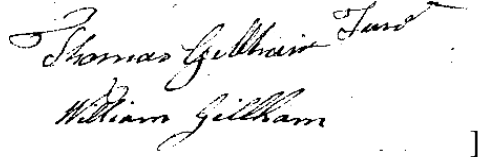 Thomas Gillham Junr
William Gillham
]